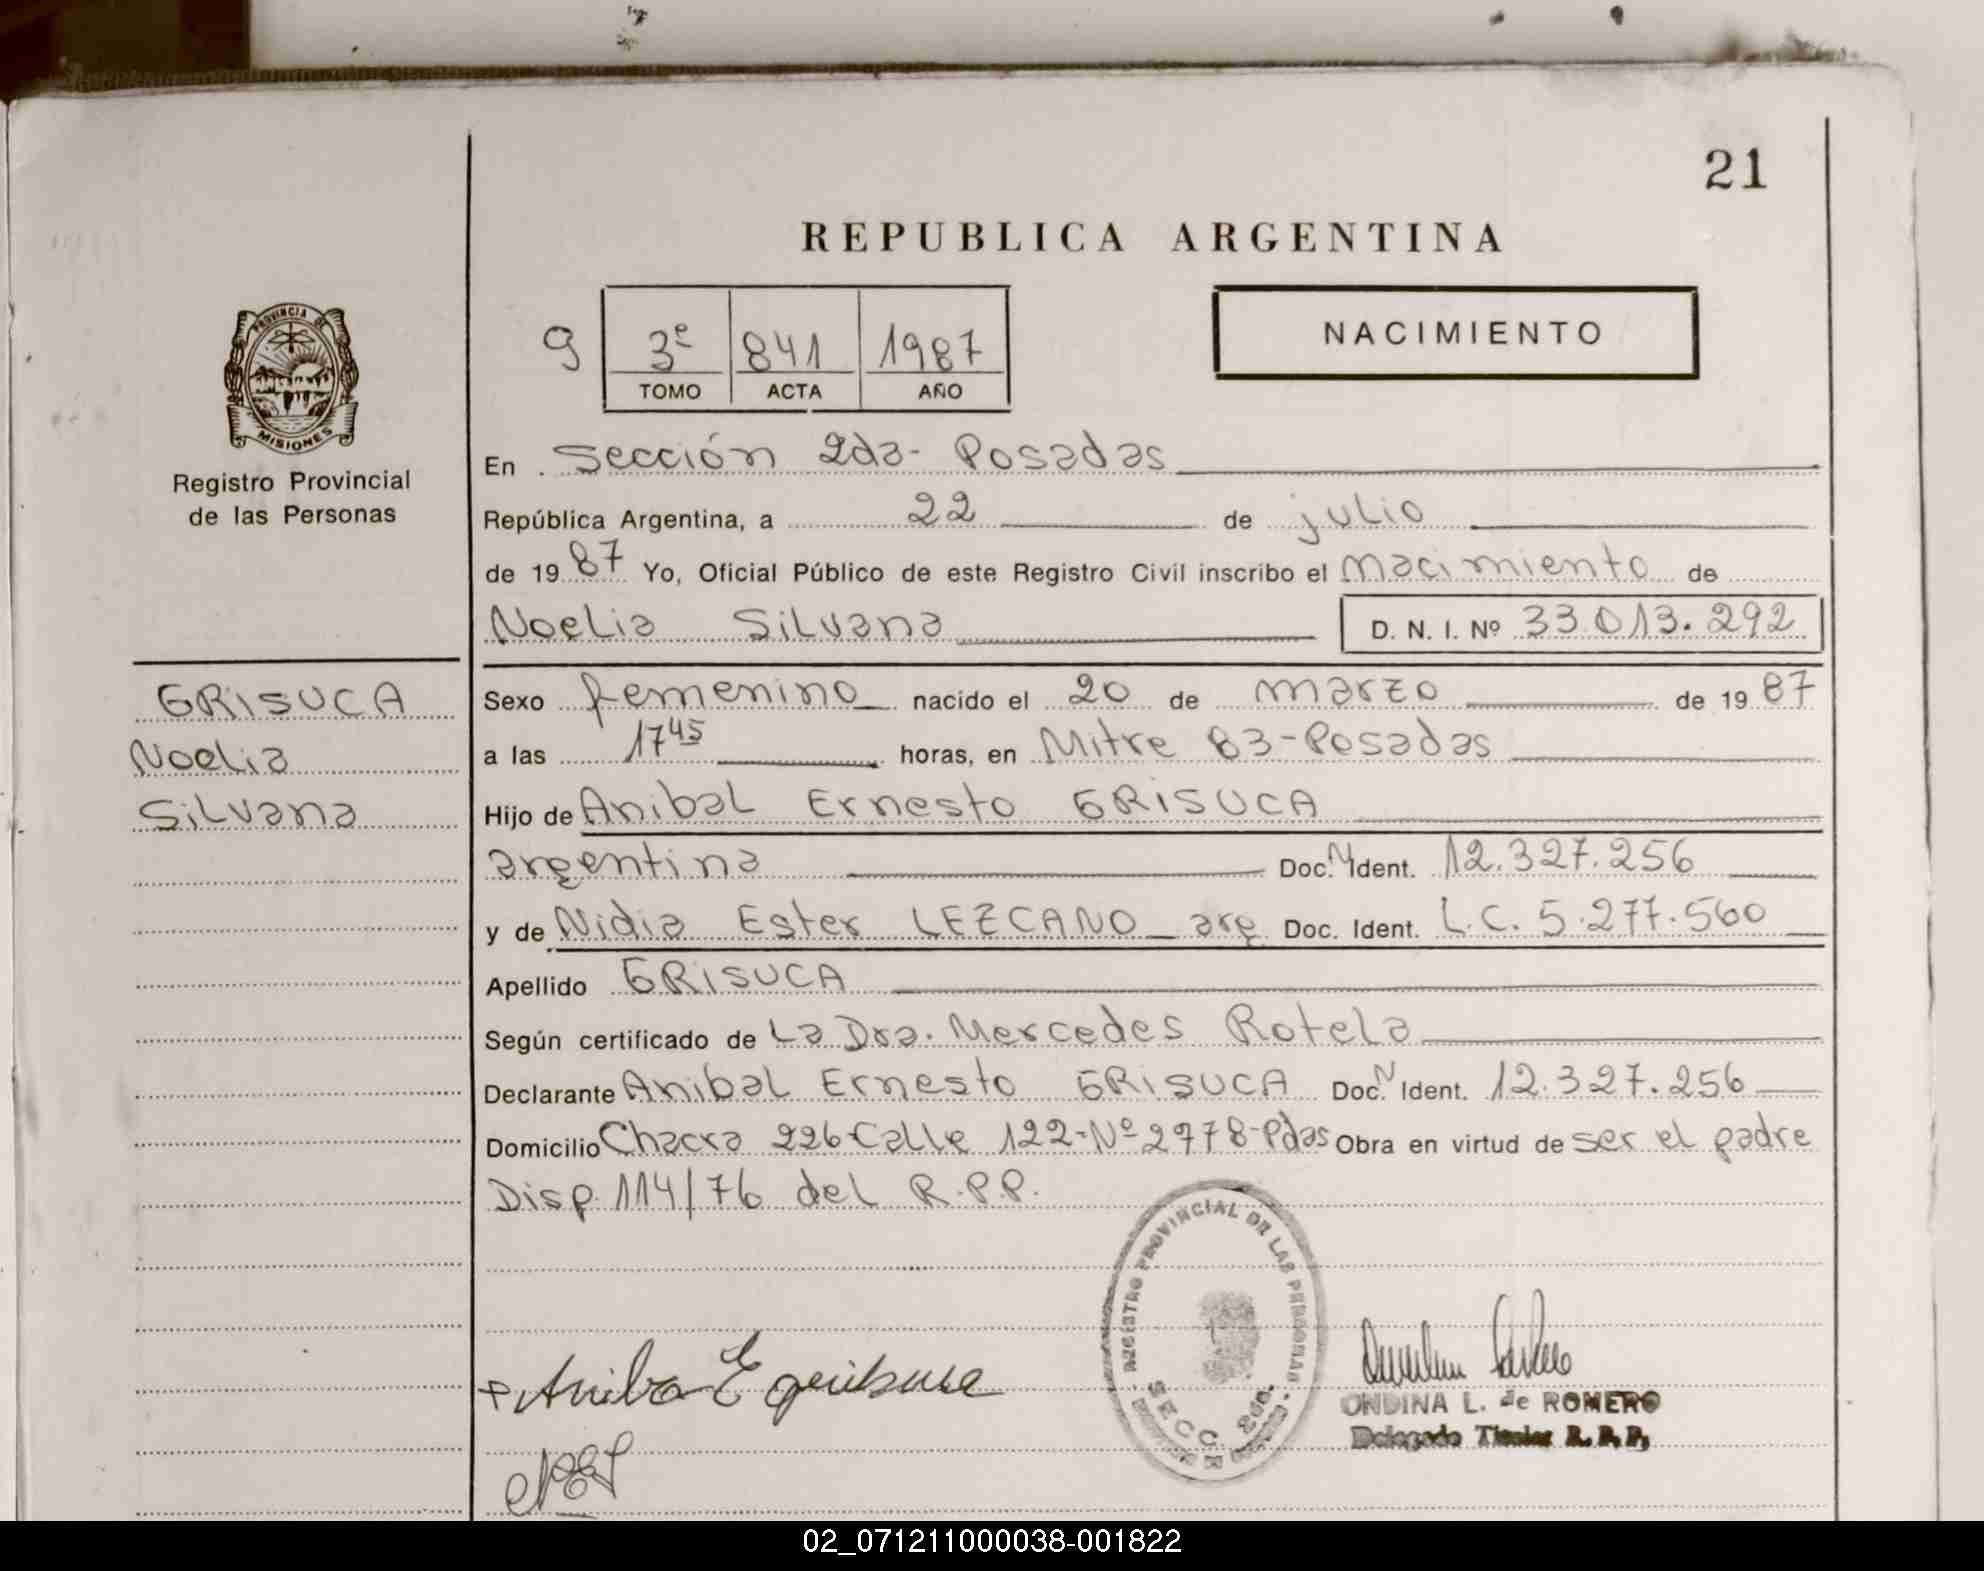 21
REPUBLICA ARGENTINA
NACIMIENTO
9 3º 841 1987
TOMO ACTA AÑO
PROVINCIA DE
MISIONES
Registro Provincial
de las Personas
En Sección 2da- Posadas
República Argentina, a 22 de julio
de 1987 Yo, Oficial Público de este Registro Civil inscribo el nacimiento de
Noelia Silvana D. N. I. Nº 33.013.292
GRISUCA
Noelia
Silvana
Sexo femenino nacido el 20 de marzo de 1987
a las 17 45 horas, en Mitre 83-Posadas
Hijo de Anibal Ernesto GRISUCA
argentina Doc. N Ident. 12.327.256
y de Nidia Ester LEZCANO arg Doc. Ident. L.C. 5.277.560
Apellido GRISUCA
Según certificado de La Dra. Mercedes Rotela
Declarante Anibal Ernesto GRISUCA Doc. N Ident. 12.327.256
Domicilio Chacra 226-Calle 122-Nº 2978-Pdas Obra en virtud de ser el padre
Disp. 114/76 del R.P.P.
REGISTRO PROVINCIAL DE LAS PERSONAS
SECC. 2da.
ONDINA L. de ROMERO
Delegado Titular R. P. P.
02_071211000038-001822